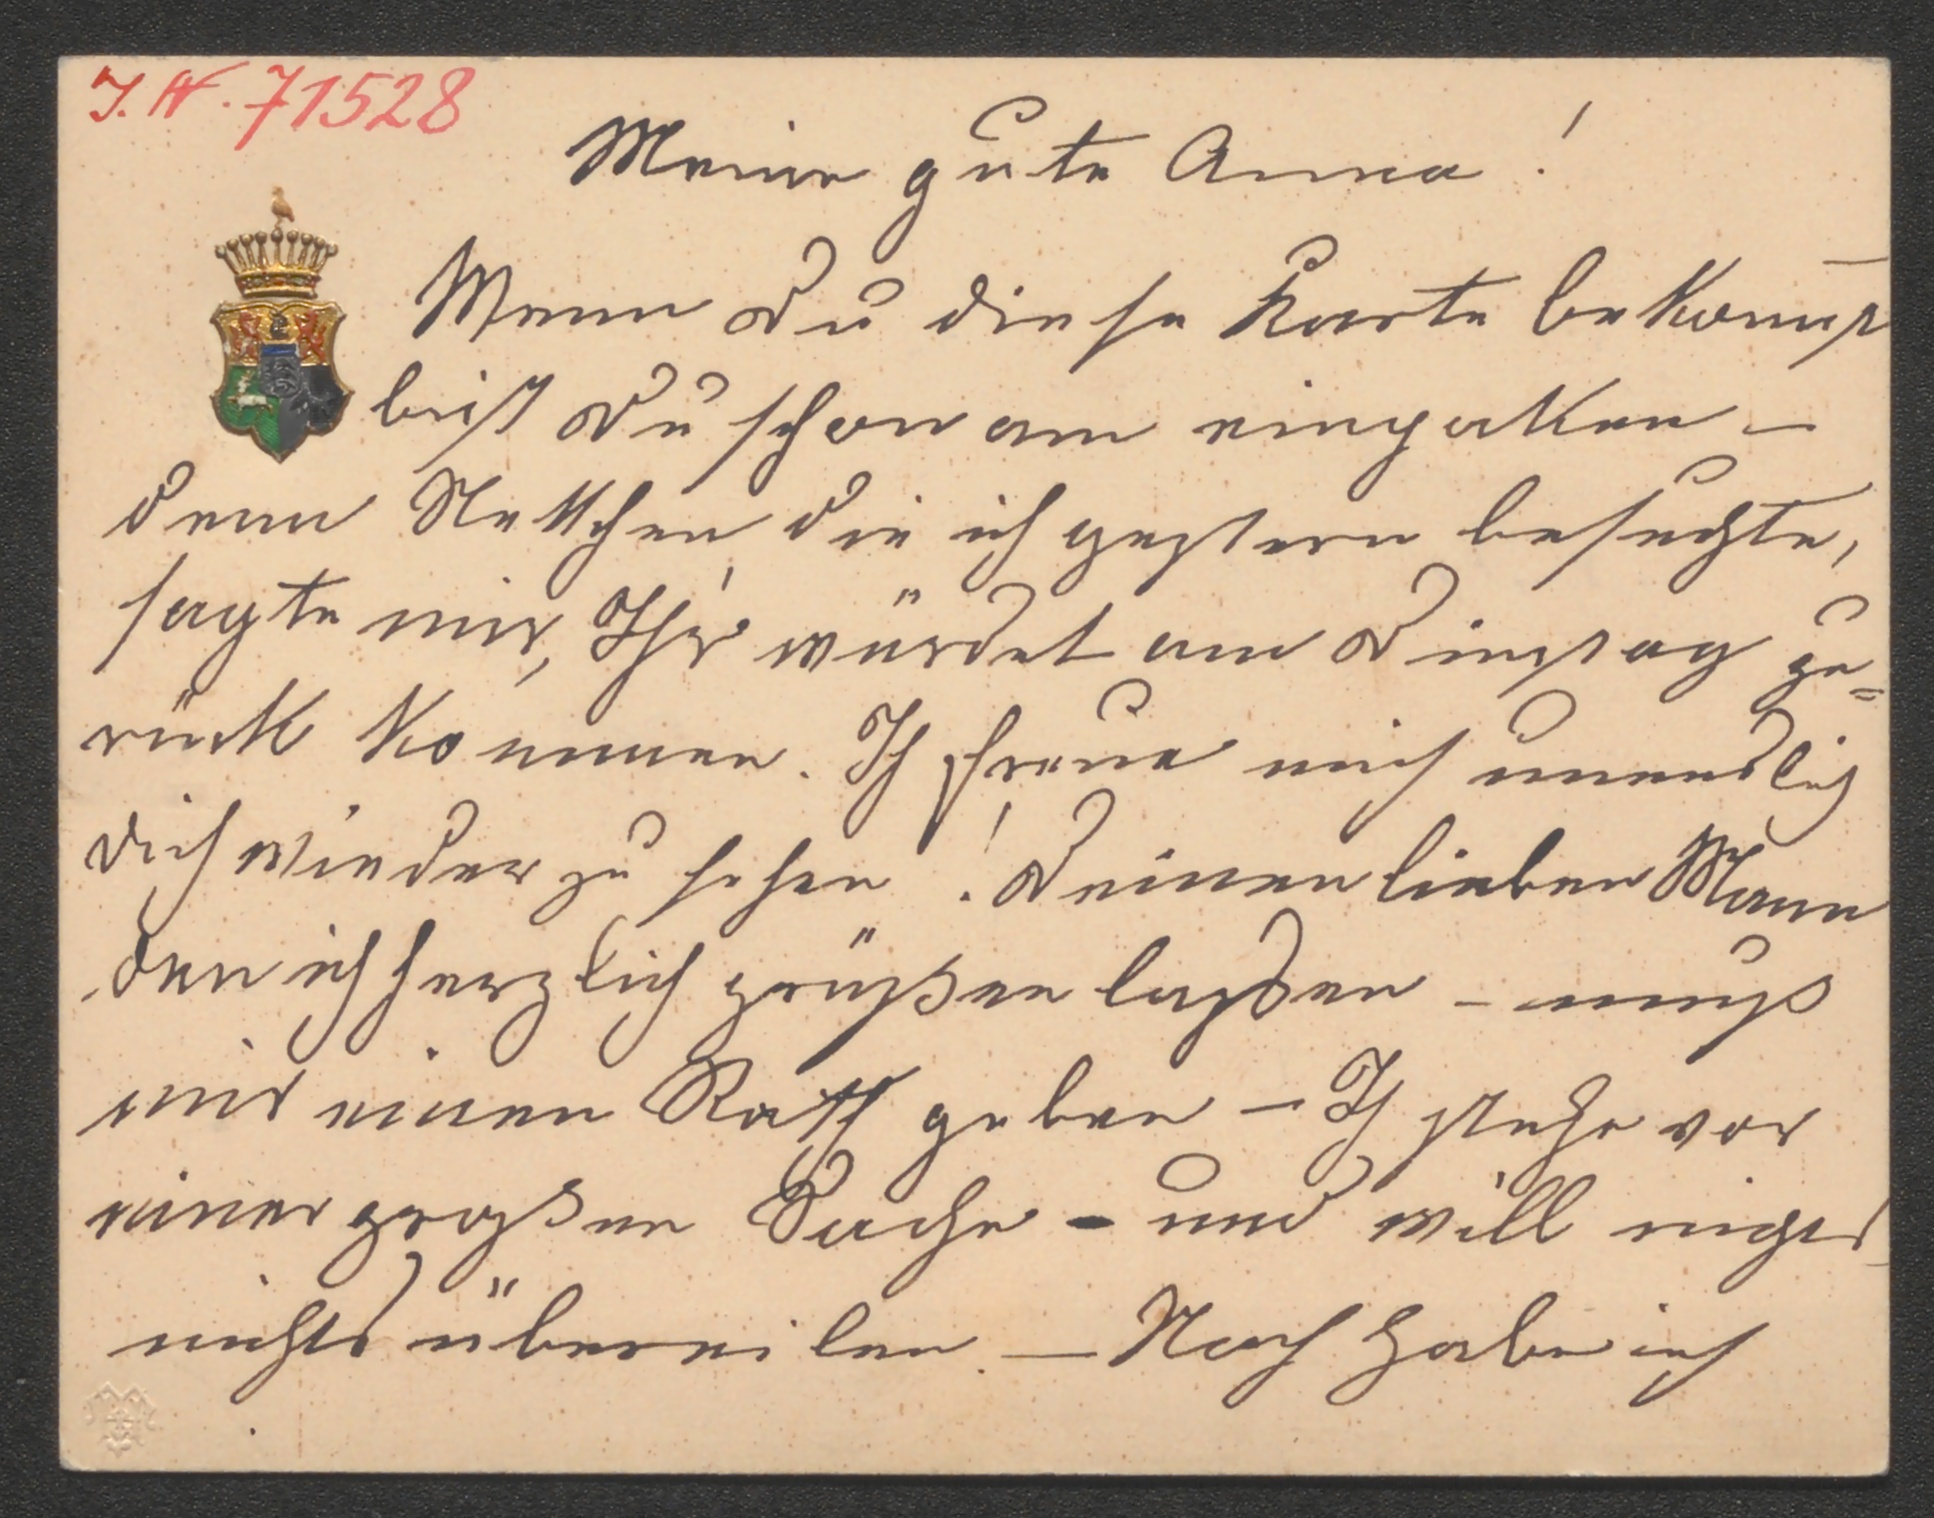 J. N. 71528
Meine gute Anna!
Wenn Du diese Karte bekom̄st
bist Du schon am einpaken –
denn Nettchen, die ich gestern besuchte,
sagte mir, Ihr würdet am Dinstag zu=
rück kommen. Ich freue mich unendlich
Dich wieder zu sehen! Deinen lieben Mann
den ich herzlich grüßen lassen – muß
mir einen Rath geben – Ich stehe vor
einer großen Sache – und will nichts
nichts übereilen. – Noch habe ich